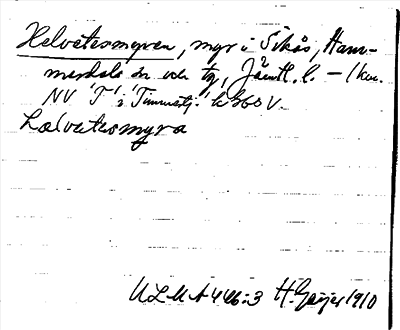 Helvetesmyren, myr i Sikås, Ham-
merdals sn och tg, Jämtl. l. – 1 km
NV 'T' i 'Timmestj.' k 360 V.
hælvetesmyra
ULMA 446:3 H. Geijer 1910